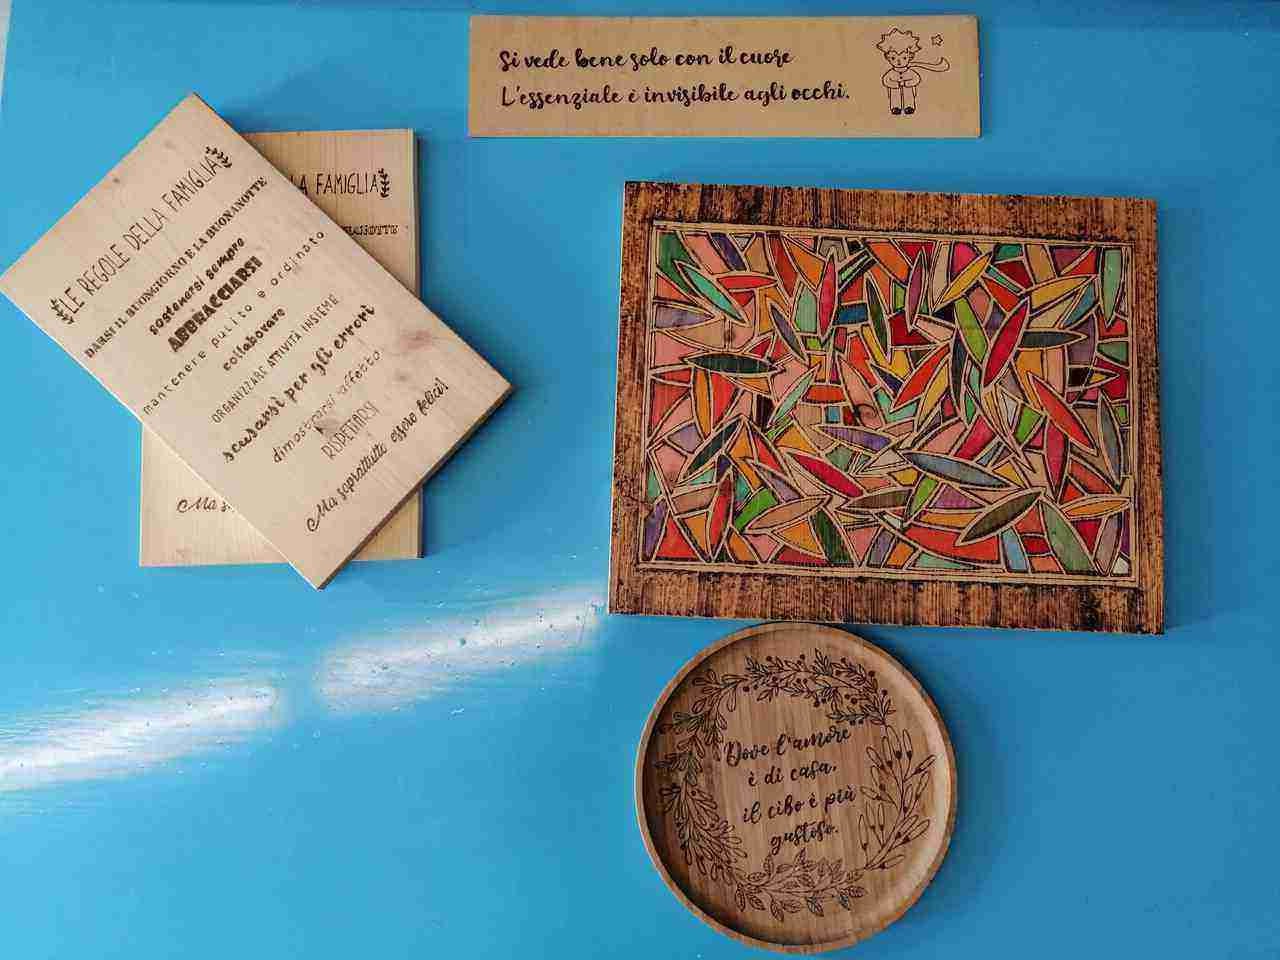 Si vede bene solo con il cuore
L'essenziale è invisibile agli occhi.
LE REGOLE DELLA FAMIGLIA
DARSI IL BUONGIORNO E LA BUONANOTTE
sostenersi sempre
ABBRACCIARSI
mantenere pulito e ordinato
collaborare
ORGANIZZARE ATTIVITÀ INSIEME
scusarsi per gli errori
dimostrarsi affetto
RISPETTARSI
Ma soprattutto essere felici!
LA FAMIGLIA
Ma
Dove l'amore
è di casa,
il cibo è più
gustoso.